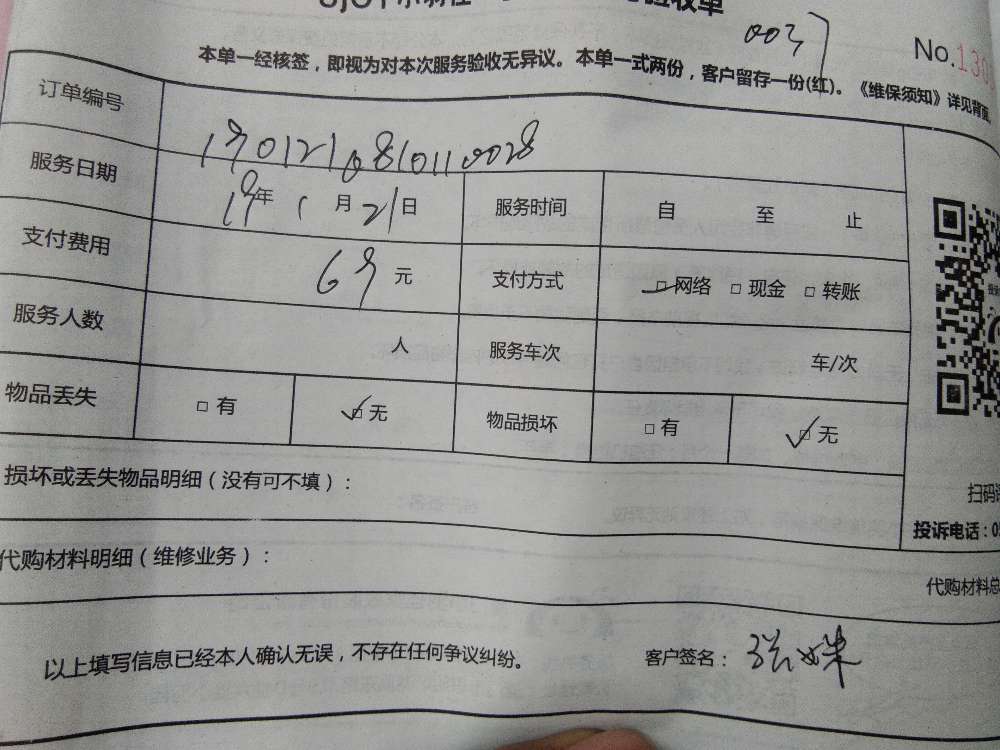 验收单
0037
No.130
本单一经核签，即视为对本次服务验收无异议。本单一式两份，客户留存一份(红)。《维保须知》详见背面
订单编号 190121081010028
服务日期 19年1月21日 服务时间 自 至 止
支付费用 69元 支付方式 □网络 □现金 □转账
服务人数 人 服务车次 车/次
物品丢失 □有 ☑无 物品损坏 □有 ☑无
损坏或丢失物品明细（没有可不填）：
扫码
投诉电话：0
代购材料明细（维修业务）：
代购材料总
以上填写信息已经本人确认无误，不存在任何争议纠纷。 客户签名：